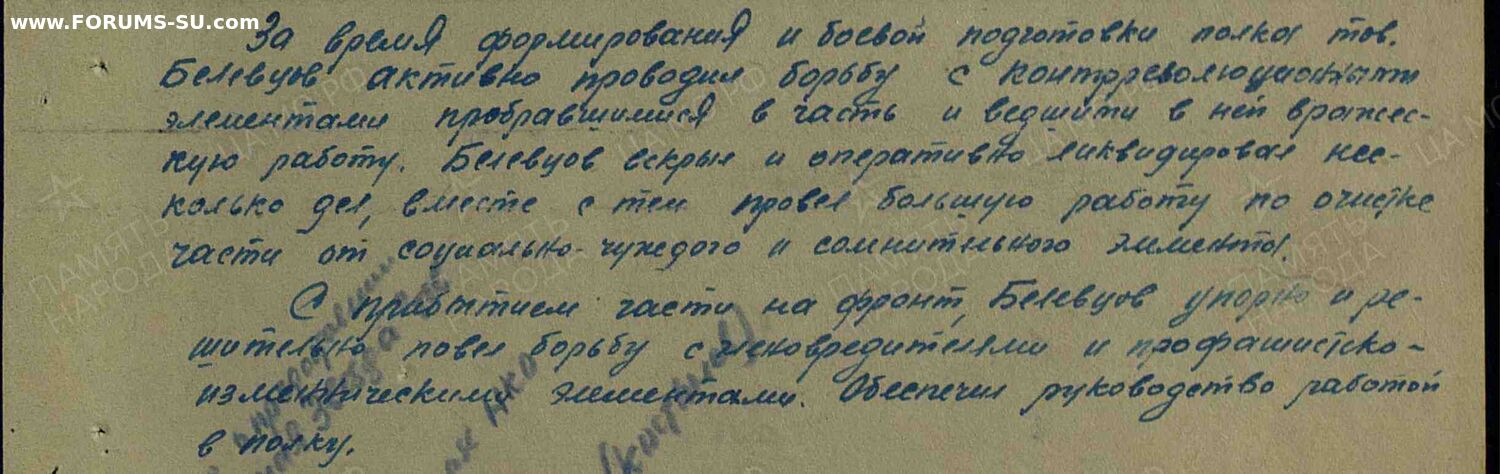 www.FORUMS-SU.com
За время формирования и боевой подготовки полка тов.
Белевцов активно проводил борьбу с контрреволюционными
элементами пробравшимися в часть и ведшими в ней вражес-
кую работу. Белевцов вскрыл и оперативно ликвидировал нес-
колько дел, вместе с тем провел большую работу по очистке
части от социально-чуждого и сомнительного элемента.
С прибытием части на фронт, Белевцов упорно и ре-
шительно повел борьбу с членовредителями и профашистско-
изменническими элементами. Обеспечил руководство работой
в полку.
ПАМЯТЬ НАРОДА
ЦА МО РФ